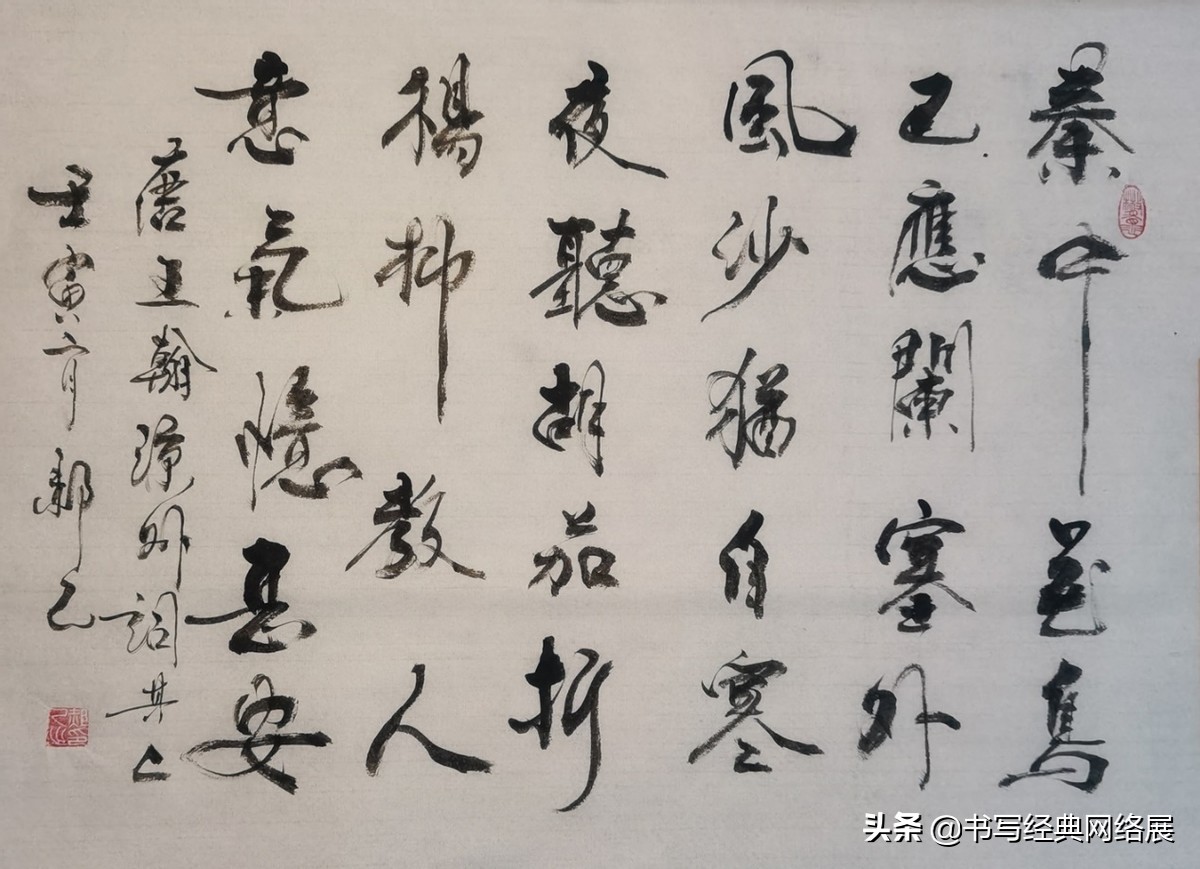 秦中花鳥
已應闌塞外
風沙猶自寒
夜聽胡笳折
楊柳教人
意氣憶長安
唐王翰涼州詞其二
壬寅 月
头条 @书写经典网络展